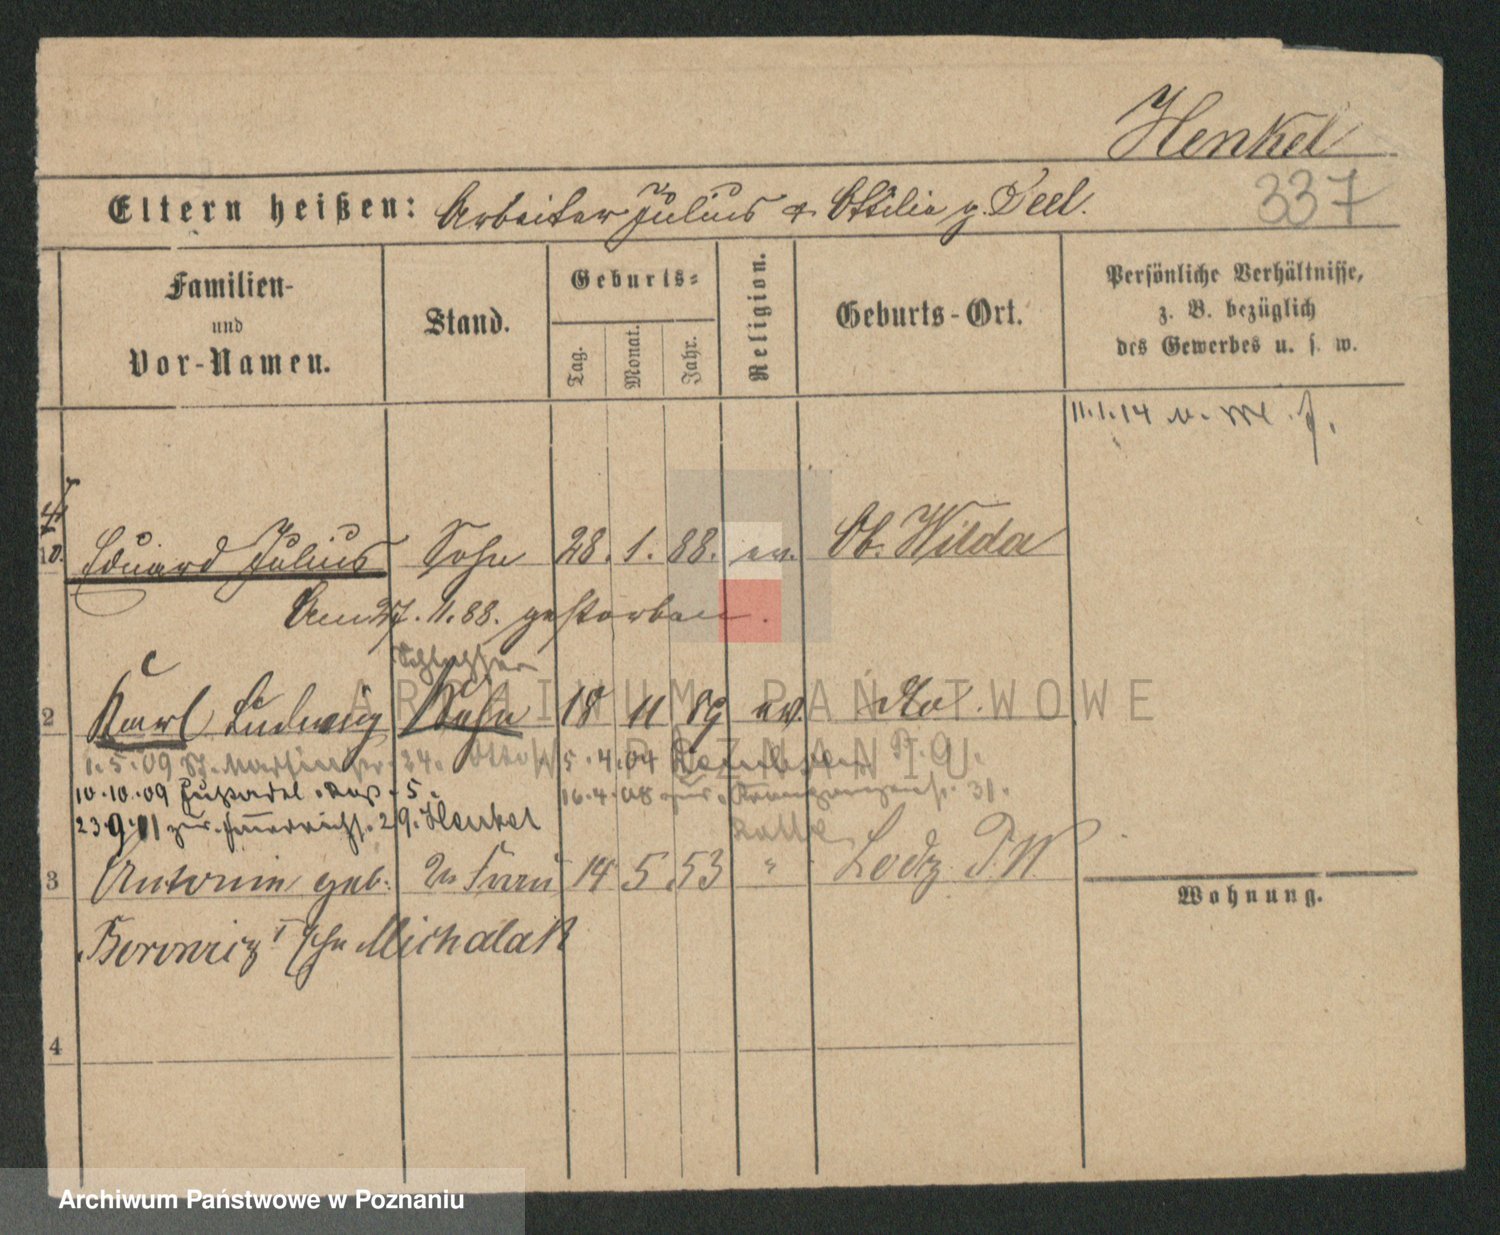 Henkel
337
Eltern heißen: Arbeiter Julius & Ottilie g. Deel.
Familien-
und
Vor-Namen.
Stand.
Geburts-
Tag.
Monat.
Jahr.
Religion.
Geburts-Ort.
Persönliche Verhältnisse,
z. B. bezüglich
des Gewerbes u. s. w.
11.1.14
10. Eduard Julius Sohn 28. 1. 88. ev. Ob. Wilda
Am 27. 11. 88. gestorben.
Schlosser
2 Karl Ludwig Sohn 18 11 89 ev. do.
1.5.09 St. Martinstr. 24. 5.4.04
10.10.09 5. 16.4.08 zur. 31.
23.9.11 zur. 29. Henkel
3 Antonie geb. 2n Frau 14 5 53 " Lodz P. W.
Borowicz Michalak
4
Wohnung.
ARCHIWUM PAŃSTWOWE
W POZNANIU
Archiwum Państwowe w Poznaniu